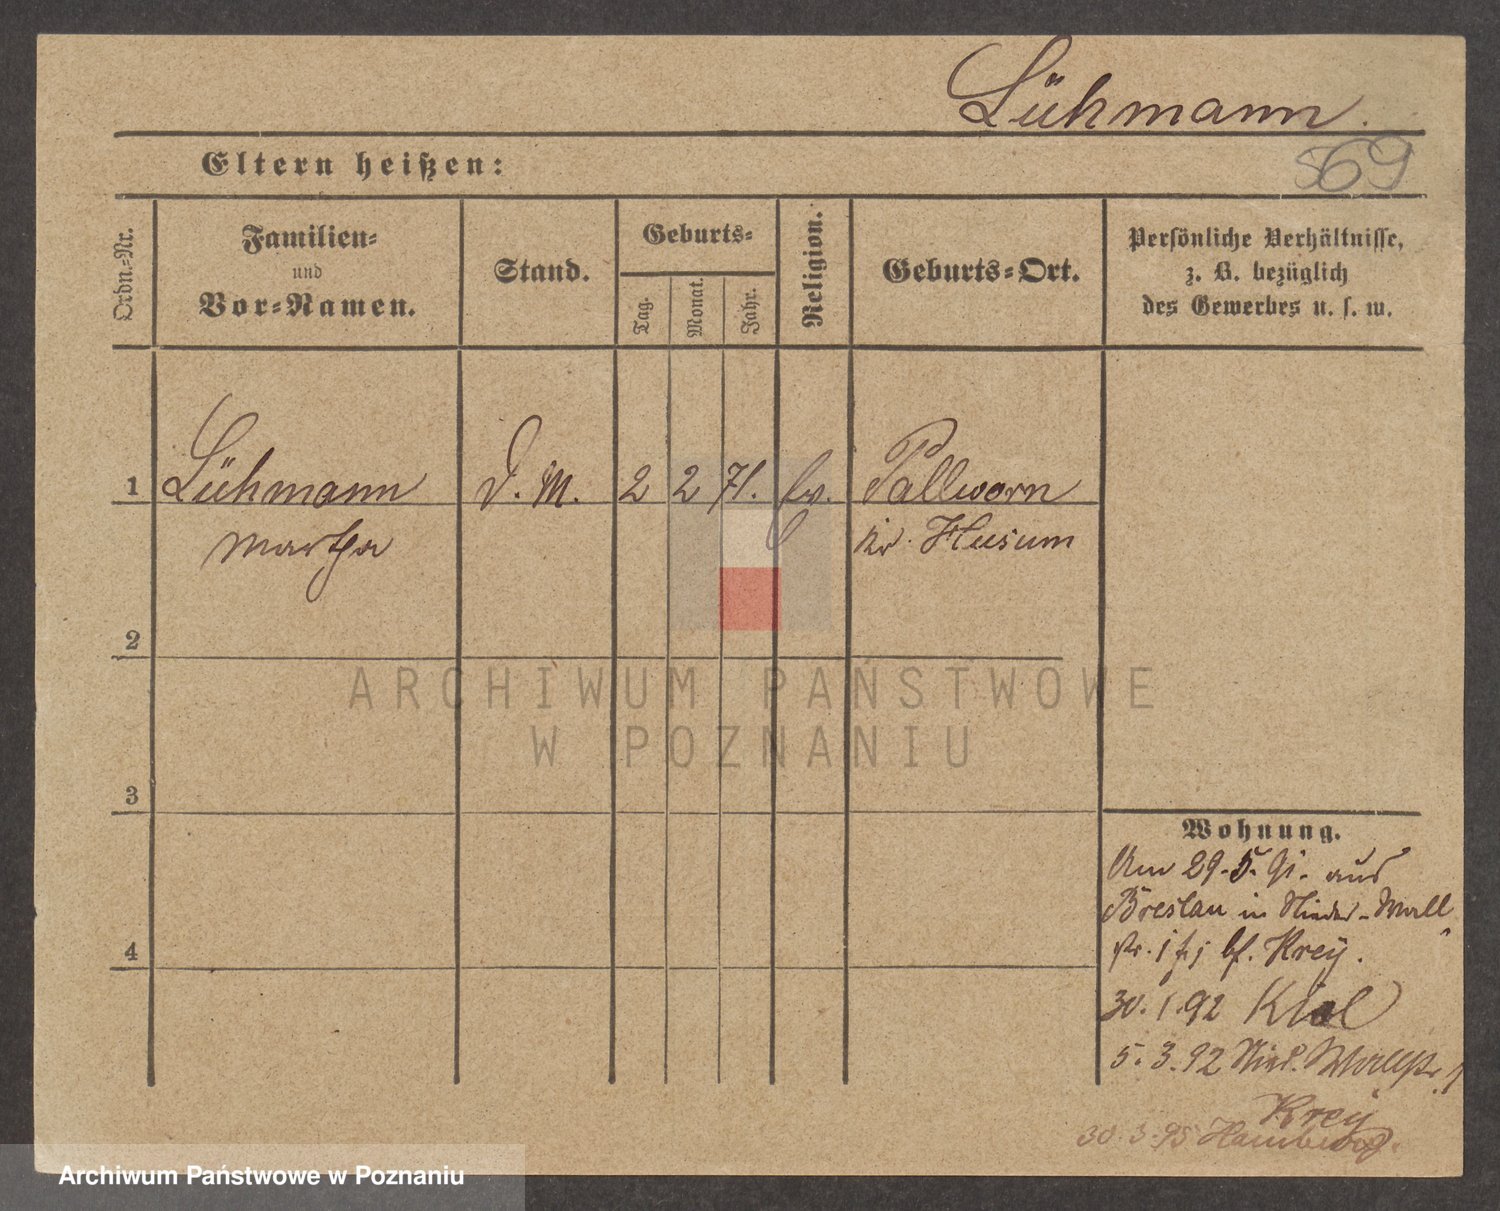 Lühmann.
569
Eltern heißen:
Ordn.-Nr.
Familien-
und
Vor-Namen.
Stand.
Geburts-
Tag.
Monat.
Jahr.
Religion.
Geburts-Ort.
Persönliche Verhältnisse,
z. B. bezüglich
des Gewerbes u. s. w.
1 Lühmann D. M. 2 2 71. Ev. Pellworn
Martha Kr. Husum
2
3
4
Wohnung.
Am 29.5.91. aus
Breslau in Nieder-Wall
str. 1 bf. Krey.
30.1.92 Kiel
5.3.92 Nied. Wallstr. 1
Krey
30.3.95 Hamburg.
ARCHIWUM PAŃSTWOWE
W POZNANIU
Archiwum Państwowe w Poznaniu